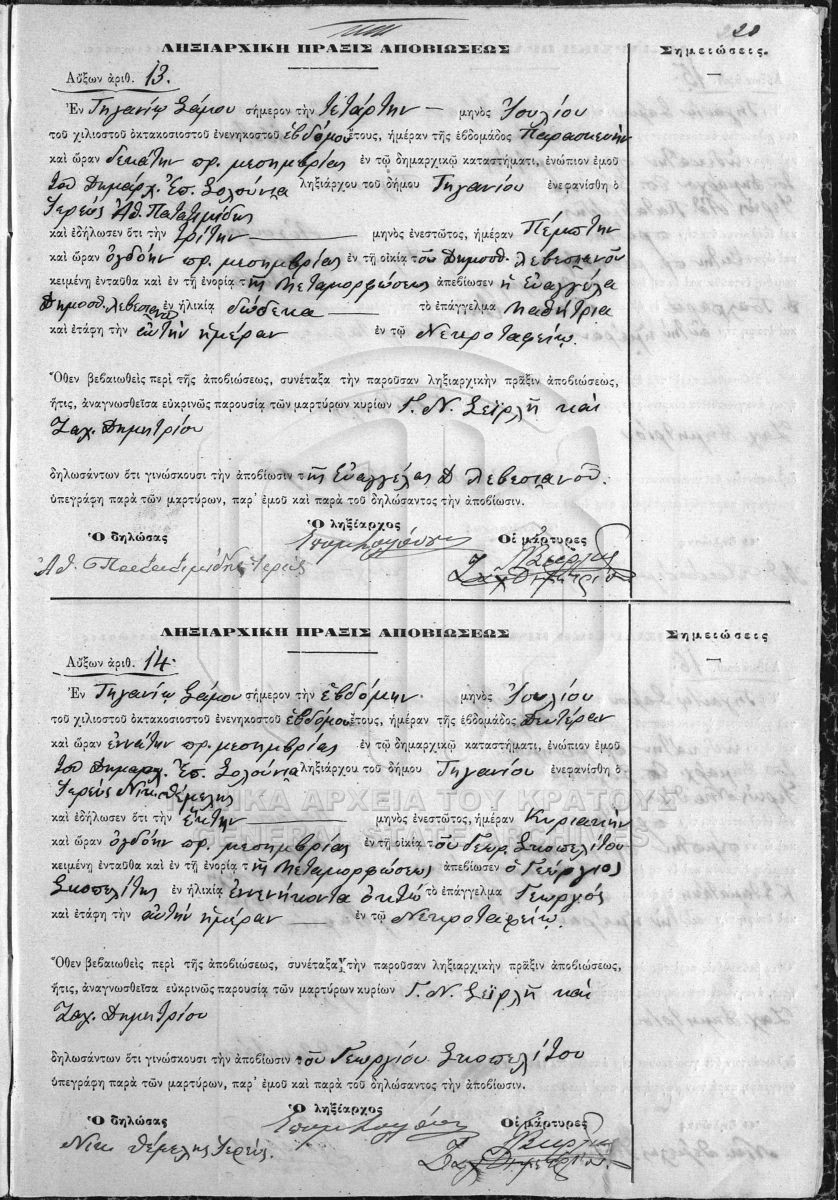 20
ΛΗΞΙΑΡΧΙΚΗ ΠΡΑΞΙΣ ΑΠΟΒΙΩΣΕΩΣ
Σημειώσεις.
Αὔξων ἀριθ. 13.
Ἐν Τηγανίῳ Σάμου σήμερον τὴν τετάρτην μηνὸς Ἰουλίου
τοῦ χιλιοστοῦ ὀκτακοσιοστοῦ ἐνενηκοστοῦ ἑβδόμου ἔτους, ἡμέραν τῆς ἑβδομάδος Παρασκευὴν
καὶ ὥραν δεκάτην πρ. μεσημβρίας ἐν τῷ δημαρχικῷ καταστήματι, ἐνώπιον ἐμοῦ
τοῦ Δημάρχ. Ἐπ. Σολούνια ληξιάρχου τοῦ δήμου Τηγανίου ἐνεφανίσθη ὁ
Ἱερεὺς Ἀθ. Παπατιμίδης
καὶ ἐδήλωσεν ὅτι τὴν τρίτην μηνὸς ἐνεστῶτος, ἡμέραν Πέμπτην
καὶ ὥραν ὀγδόην πρ. μεσημβρίας ἐν τῇ οἰκίᾳ τοῦ Δημοσθ. Λεβεσιανοῦ
κειμένῃ ἐνταῦθα καὶ ἐν τῇ ἐνορίᾳ τῆς Μεταμορφώσεως ἀπεβίωσεν ἡ Εὐαγγέλα
Δημοσθ. Λεβεσιανοῦ ἐν ἡλικίᾳ δώδεκα τὸ ἐπάγγελμα μαθήτρια
καὶ ἐτάφη τὴν αὐτὴν ἡμέραν ἐν τῷ Νεκροταφείῳ.
Ὅθεν βεβαιωθεὶς περὶ τῆς ἀποβιώσεως, συνέταξα τὴν παροῦσαν ληξιαρχικὴν πρᾶξιν ἀποβιώσεως,
ἥτις, ἀναγνωσθεῖσα εὐκρινῶς παρουσίᾳ τῶν μαρτύρων κυρίων Γ. Ν. Σεϊρλῆ καὶ
Ζαχ. Δημητρίου
δηλωσάντων ὅτι γινώσκουσι τὴν ἀποβίωσιν τῆς Εὐαγγέλας Δ. Λεβεσιανοῦ.
ὑπεγράφη παρὰ τῶν μαρτύρων, παρ' ἐμοῦ καὶ παρὰ τοῦ δηλώσαντος τὴν ἀποβίωσιν.
Ὁ δηλώσας
Ὁ ληξίαρχος
Οἱ μάρτυρες
Ἀθ. Παπατιμίδης Ἱερεὺς
Ζαχ Δημητρίου
ΛΗΞΙΑΡΧΙΚΗ ΠΡΑΞΙΣ ΑΠΟΒΙΩΣΕΩΣ
Σημειώσεις
Αὔξων ἀριθ. 14.
Ἐν Τηγανίῳ Σάμου σήμερον τὴν ἑβδόμην μηνὸς Ἰουλίου
τοῦ χιλιοστοῦ ὀκτακοσιοστοῦ ἐνενηκοστοῦ ἑβδόμου ἔτους, ἡμέραν τῆς ἑβδομάδος Δευτέραν
καὶ ὥραν ἐννάτην πρ. μεσημβρίας ἐν τῷ δημαρχικῷ καταστήματι, ἐνώπιον ἐμοῦ
τοῦ Δημάρχ. Ἐπ. Σολούνια ληξιάρχου τοῦ δήμου Τηγανίου ἐνεφανίσθη ὁ
Ἱερεὺς Νικ. Θέμελης
ΓΕΝΙΚΑ ΑΡΧΕΙΑ ΤΟΥ ΚΡΑΤΟΥΣ
καὶ ἐδήλωσεν ὅτι τὴν ἕκτην μηνὸς ἐνεστῶτος, ἡμέραν Κυριακὴν
GENERAL STATE ARCHIVES
καὶ ὥραν ὀγδόην πρ. μεσημβρίας ἐν τῇ οἰκίᾳ τοῦ Γεωρ. Σκοπελίτου
κειμένῃ ἐνταῦθα καὶ ἐν τῇ ἐνορίᾳ τῆς Μεταμορφώσεως ἀπεβίωσεν ὁ Γεώργιος
Σκοπελίτης ἐν ἡλικίᾳ ἐννενήκοντα ὀκτὼ τὸ ἐπάγγελμα Γεωργὸς
καὶ ἐτάφη τὴν αὐτὴν ἡμέραν ἐν τῷ Νεκροταφείῳ.
Ὅθεν βεβαιωθεὶς περὶ τῆς ἀποβιώσεως, συνέταξα τὴν παροῦσαν ληξιαρχικὴν πρᾶξιν ἀποβιώσεως,
ἥτις, ἀναγνωσθεῖσα εὐκρινῶς παρουσίᾳ τῶν μαρτύρων κυρίων Γ. Ν. Σεϊρλῆ καὶ
Ζαχ. Δημητρίου
δηλωσάντων ὅτι γινώσκουσι τὴν ἀποβίωσιν τοῦ Γεωργίου Σκοπελίτου
ὑπεγράφη παρὰ τῶν μαρτύρων, παρ' ἐμοῦ καὶ παρὰ τοῦ δηλώσαντος τὴν ἀποβίωσιν.
Ὁ δηλώσας
Ὁ ληξίαρχος
Οἱ μάρτυρες
Νικ Θέμελης Ἱερεύς.
Ζαχ Δημητρίου